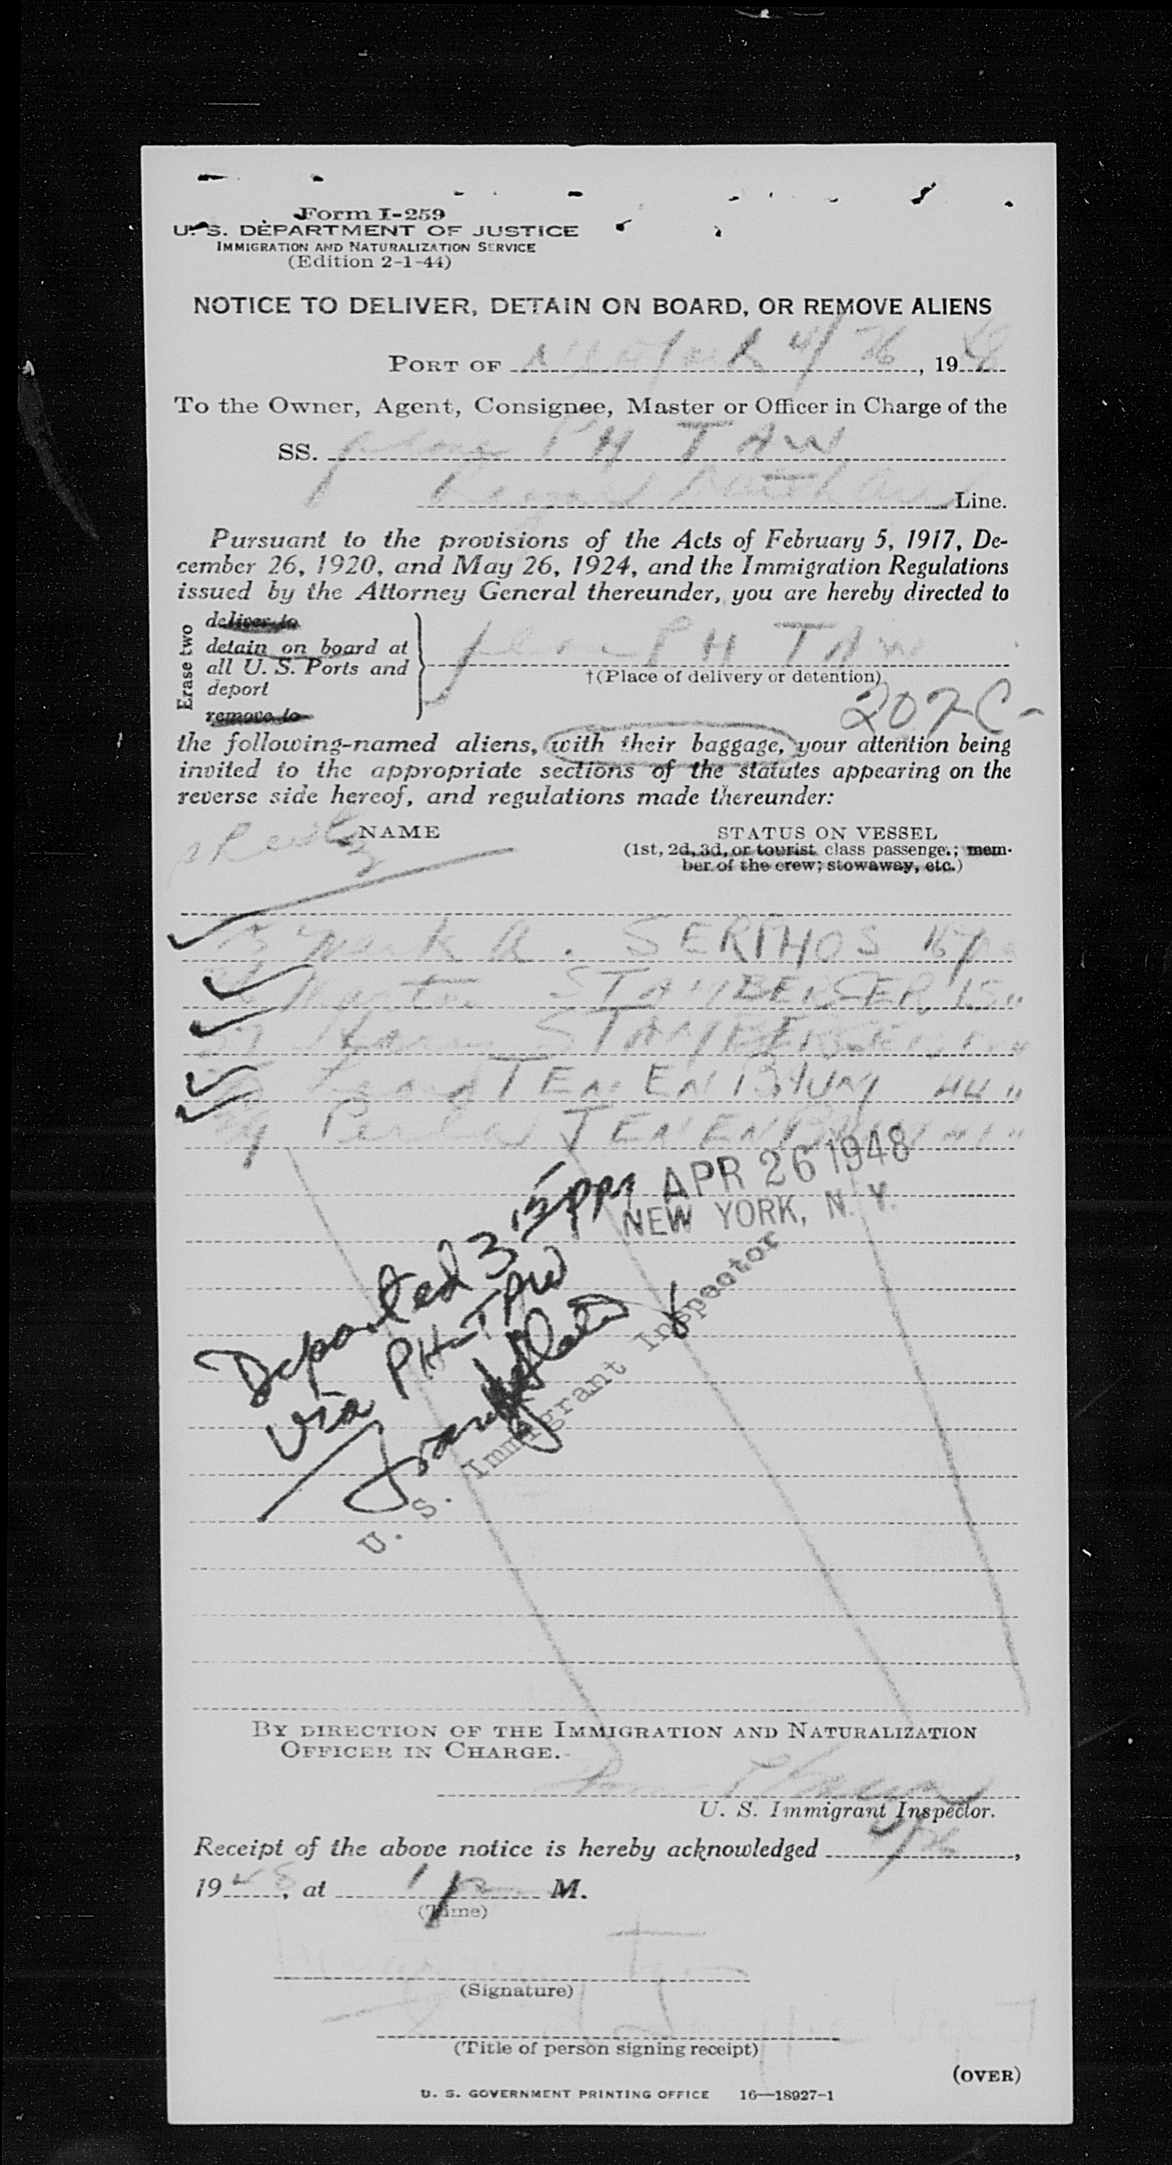 Form I-259
U. S. DEPARTMENT OF JUSTICE
IMMIGRATION AND NATURALIZATION SERVICE
(Edition 2-1-44)
NOTICE TO DELIVER, DETAIN ON BOARD, OR REMOVE ALIENS
PORT OF New York 4/26, 1948
To the Owner, Agent, Consignee, Master or Officer in Charge of the
SS. plane PH TAW
Royal Dutch Line.
Pursuant to the provisions of the Acts of February 5, 1917, De-
cember 26, 1920, and May 26, 1924, and the Immigration Regulations
issued by the Attorney General thereunder, you are hereby directed to
Erase two
deliver to
detain on board at
all U. S. Ports and
deport
remove to
plane PH TAW
†(Place of delivery or detention)
207C-
the following-named aliens, with their baggage, your attention being
invited to the appropriate sections of the statutes appearing on the
reverse side hereof, and regulations made thereunder:
NAME
STATUS ON VESSEL
(1st, 2d, 3d, or tourist class passenger; mem-
ber of the crew; stowaway, etc.)
Mark A. SERPHOS
STAMBERGER
STAMBERGER
TENENBAUM 44 "
TENENBAUM
APR 26 1948
NEW YORK, N. Y.
Departed 3:15 pm
via PH-TAW
U. S. Immigrant Inspector
BY DIRECTION OF THE IMMIGRATION AND NATURALIZATION
OFFICER IN CHARGE.
U. S. Immigrant Inspector.
Receipt of the above notice is hereby acknowledged 4/26,
1948, at 1 P M.
(Time)
(Signature)
(Title of person signing receipt)
(OVER)
U. S. GOVERNMENT PRINTING OFFICE 16—18927-1